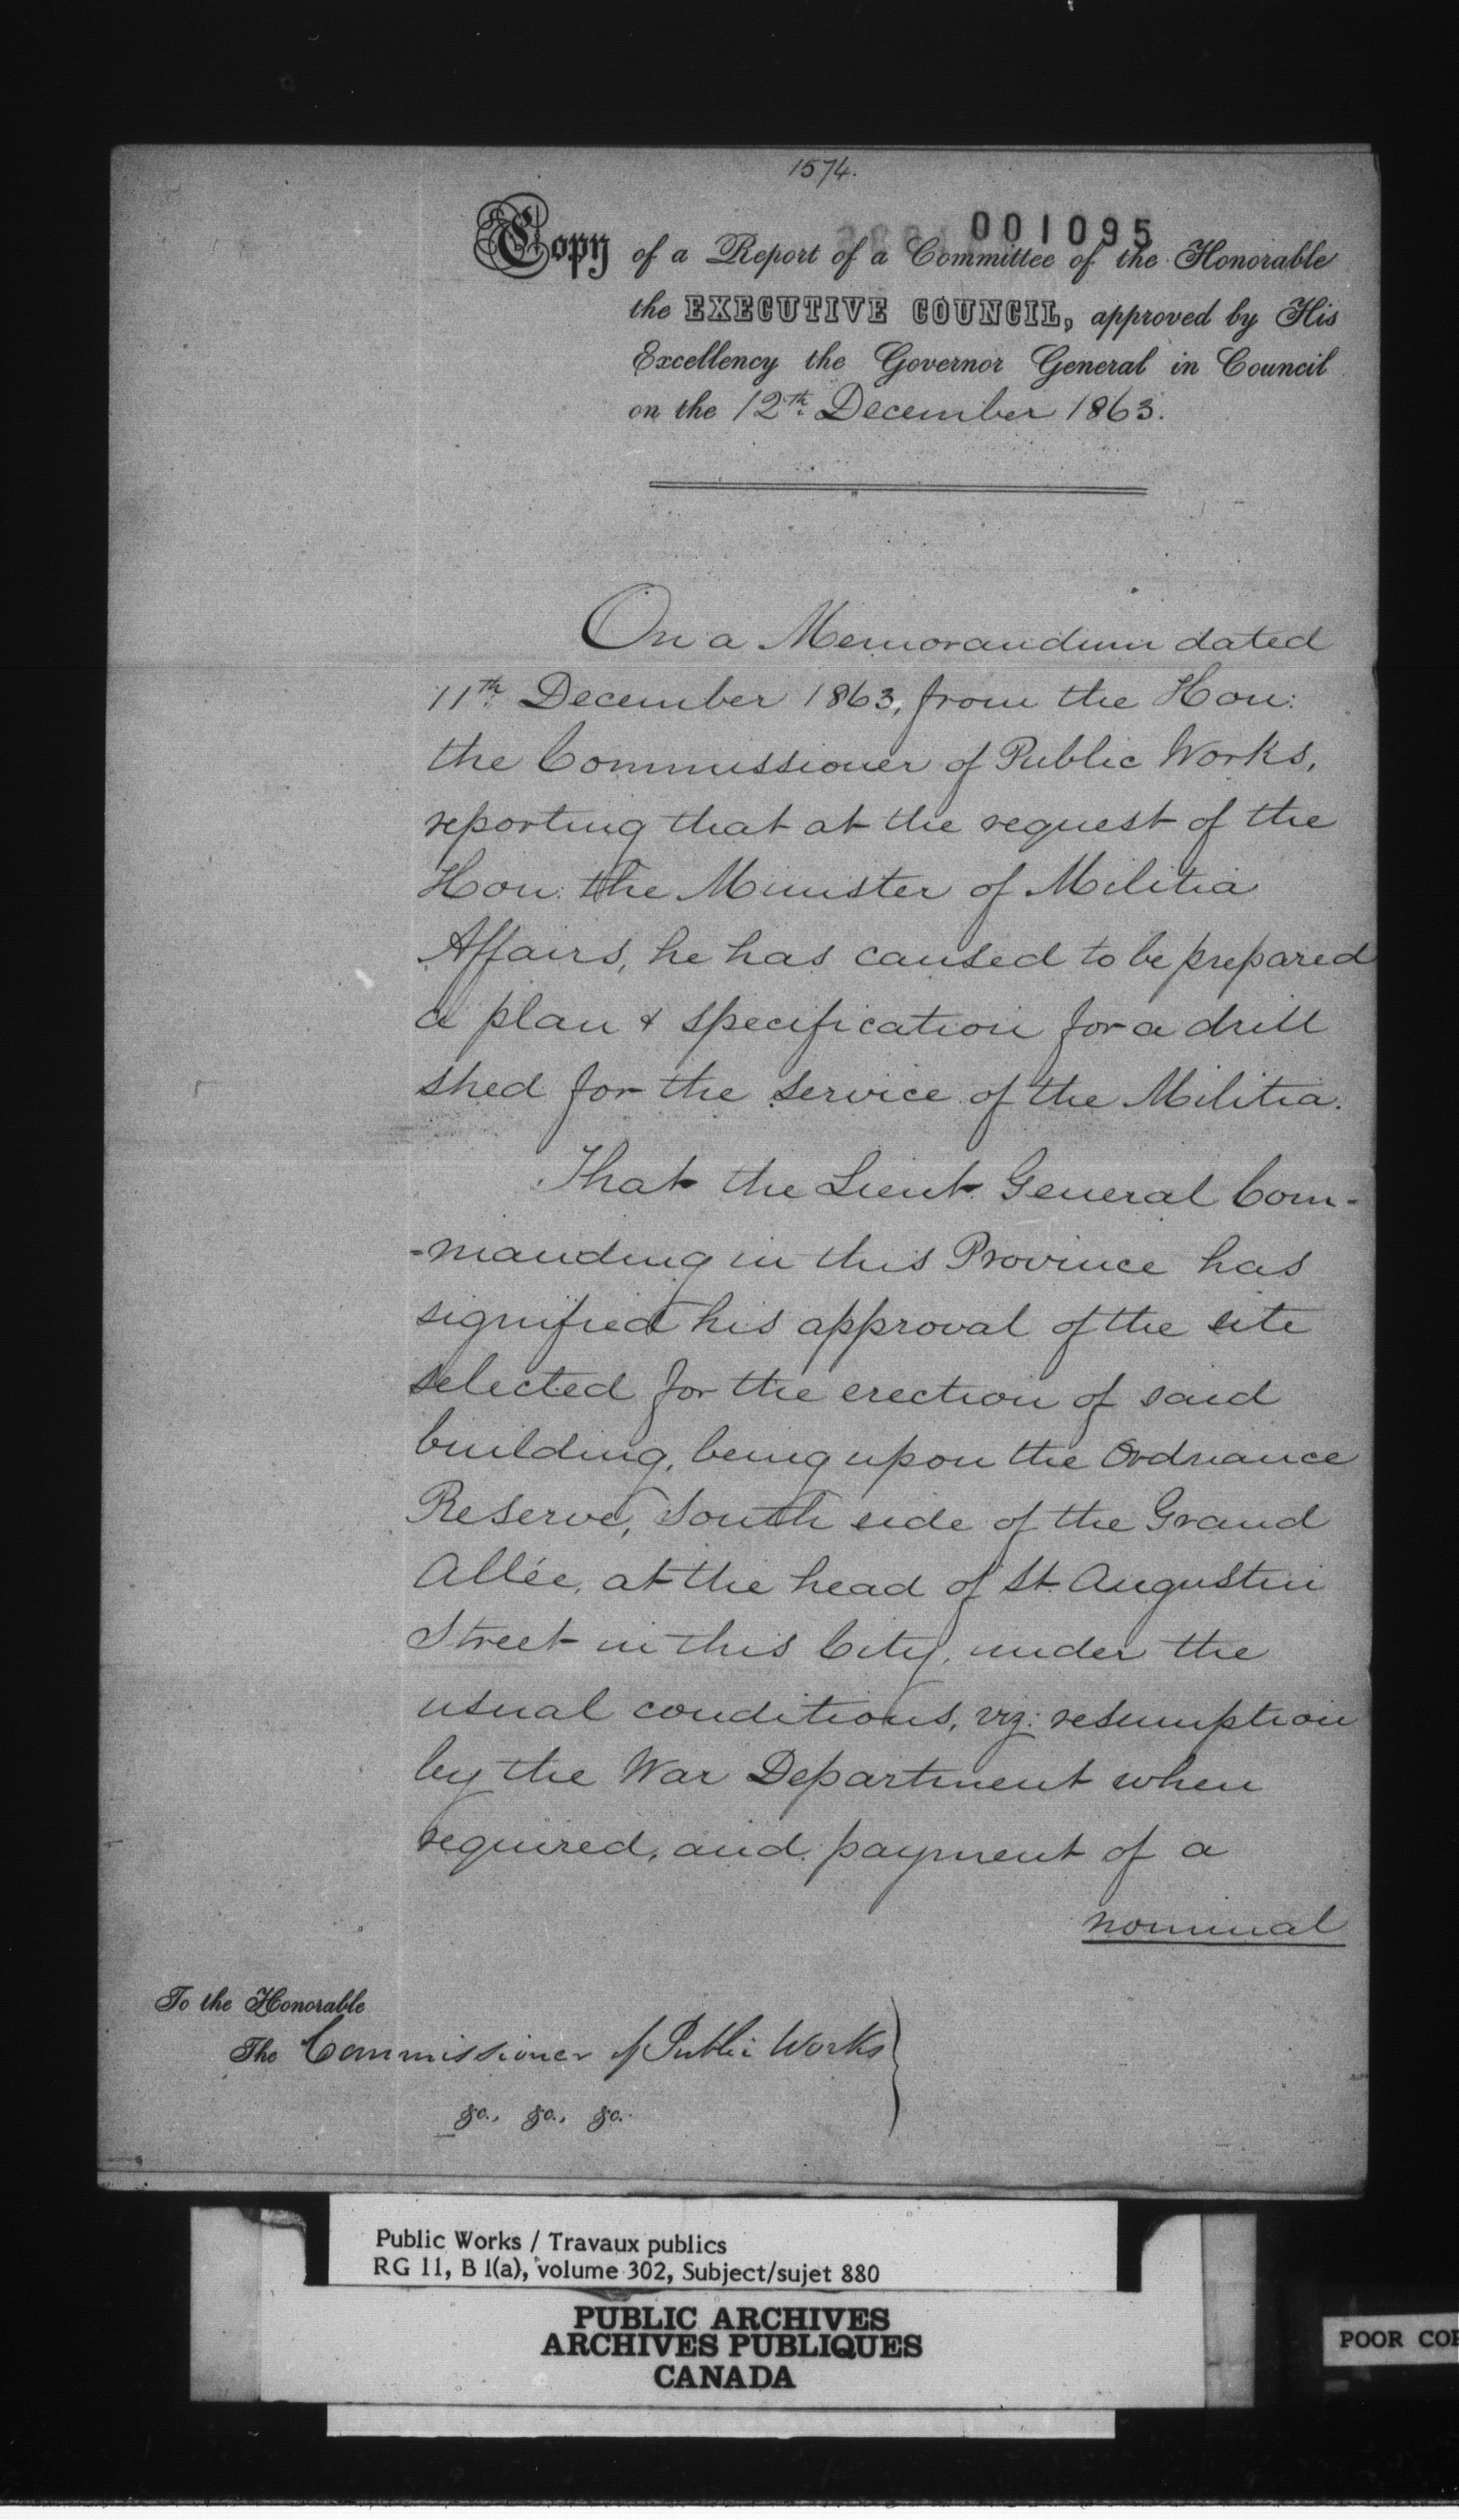 1574.
001095
Copy of a Report of a Committee of the Honorable
the EXECUTIVE COUNCIL, approved by His
Excellency the Governor General in Council
on the 12th December 1863.
On a Memorandum dated
11th December 1863, from the Hon:
the Commissioner of Public Works,
reporting that at the request of the
Hon: the Minister of Militia
Affairs, he has caused to be prepared
a plan & specification for a drill
shed for the service of the Militia.
That the Lieut. General Com-
-manding in this Province has
signified his approval of the site
selected for the erection of said
building, being upon the Ordnance
Reserve, South side of the Grand
Allée, at the head of St. Augustin
Street in this City, under the
usual conditions, viz: resumption
by the War Department when
required, and payment of a
nominal
To the Honorable
The Commissioner of Public Works
&c., &c., &c.
Public Works / Travaux publics
RG 11, B 1(a), volume 302, Subject/sujet 880
PUBLIC ARCHIVES
ARCHIVES PUBLIQUES
CANADA
POOR